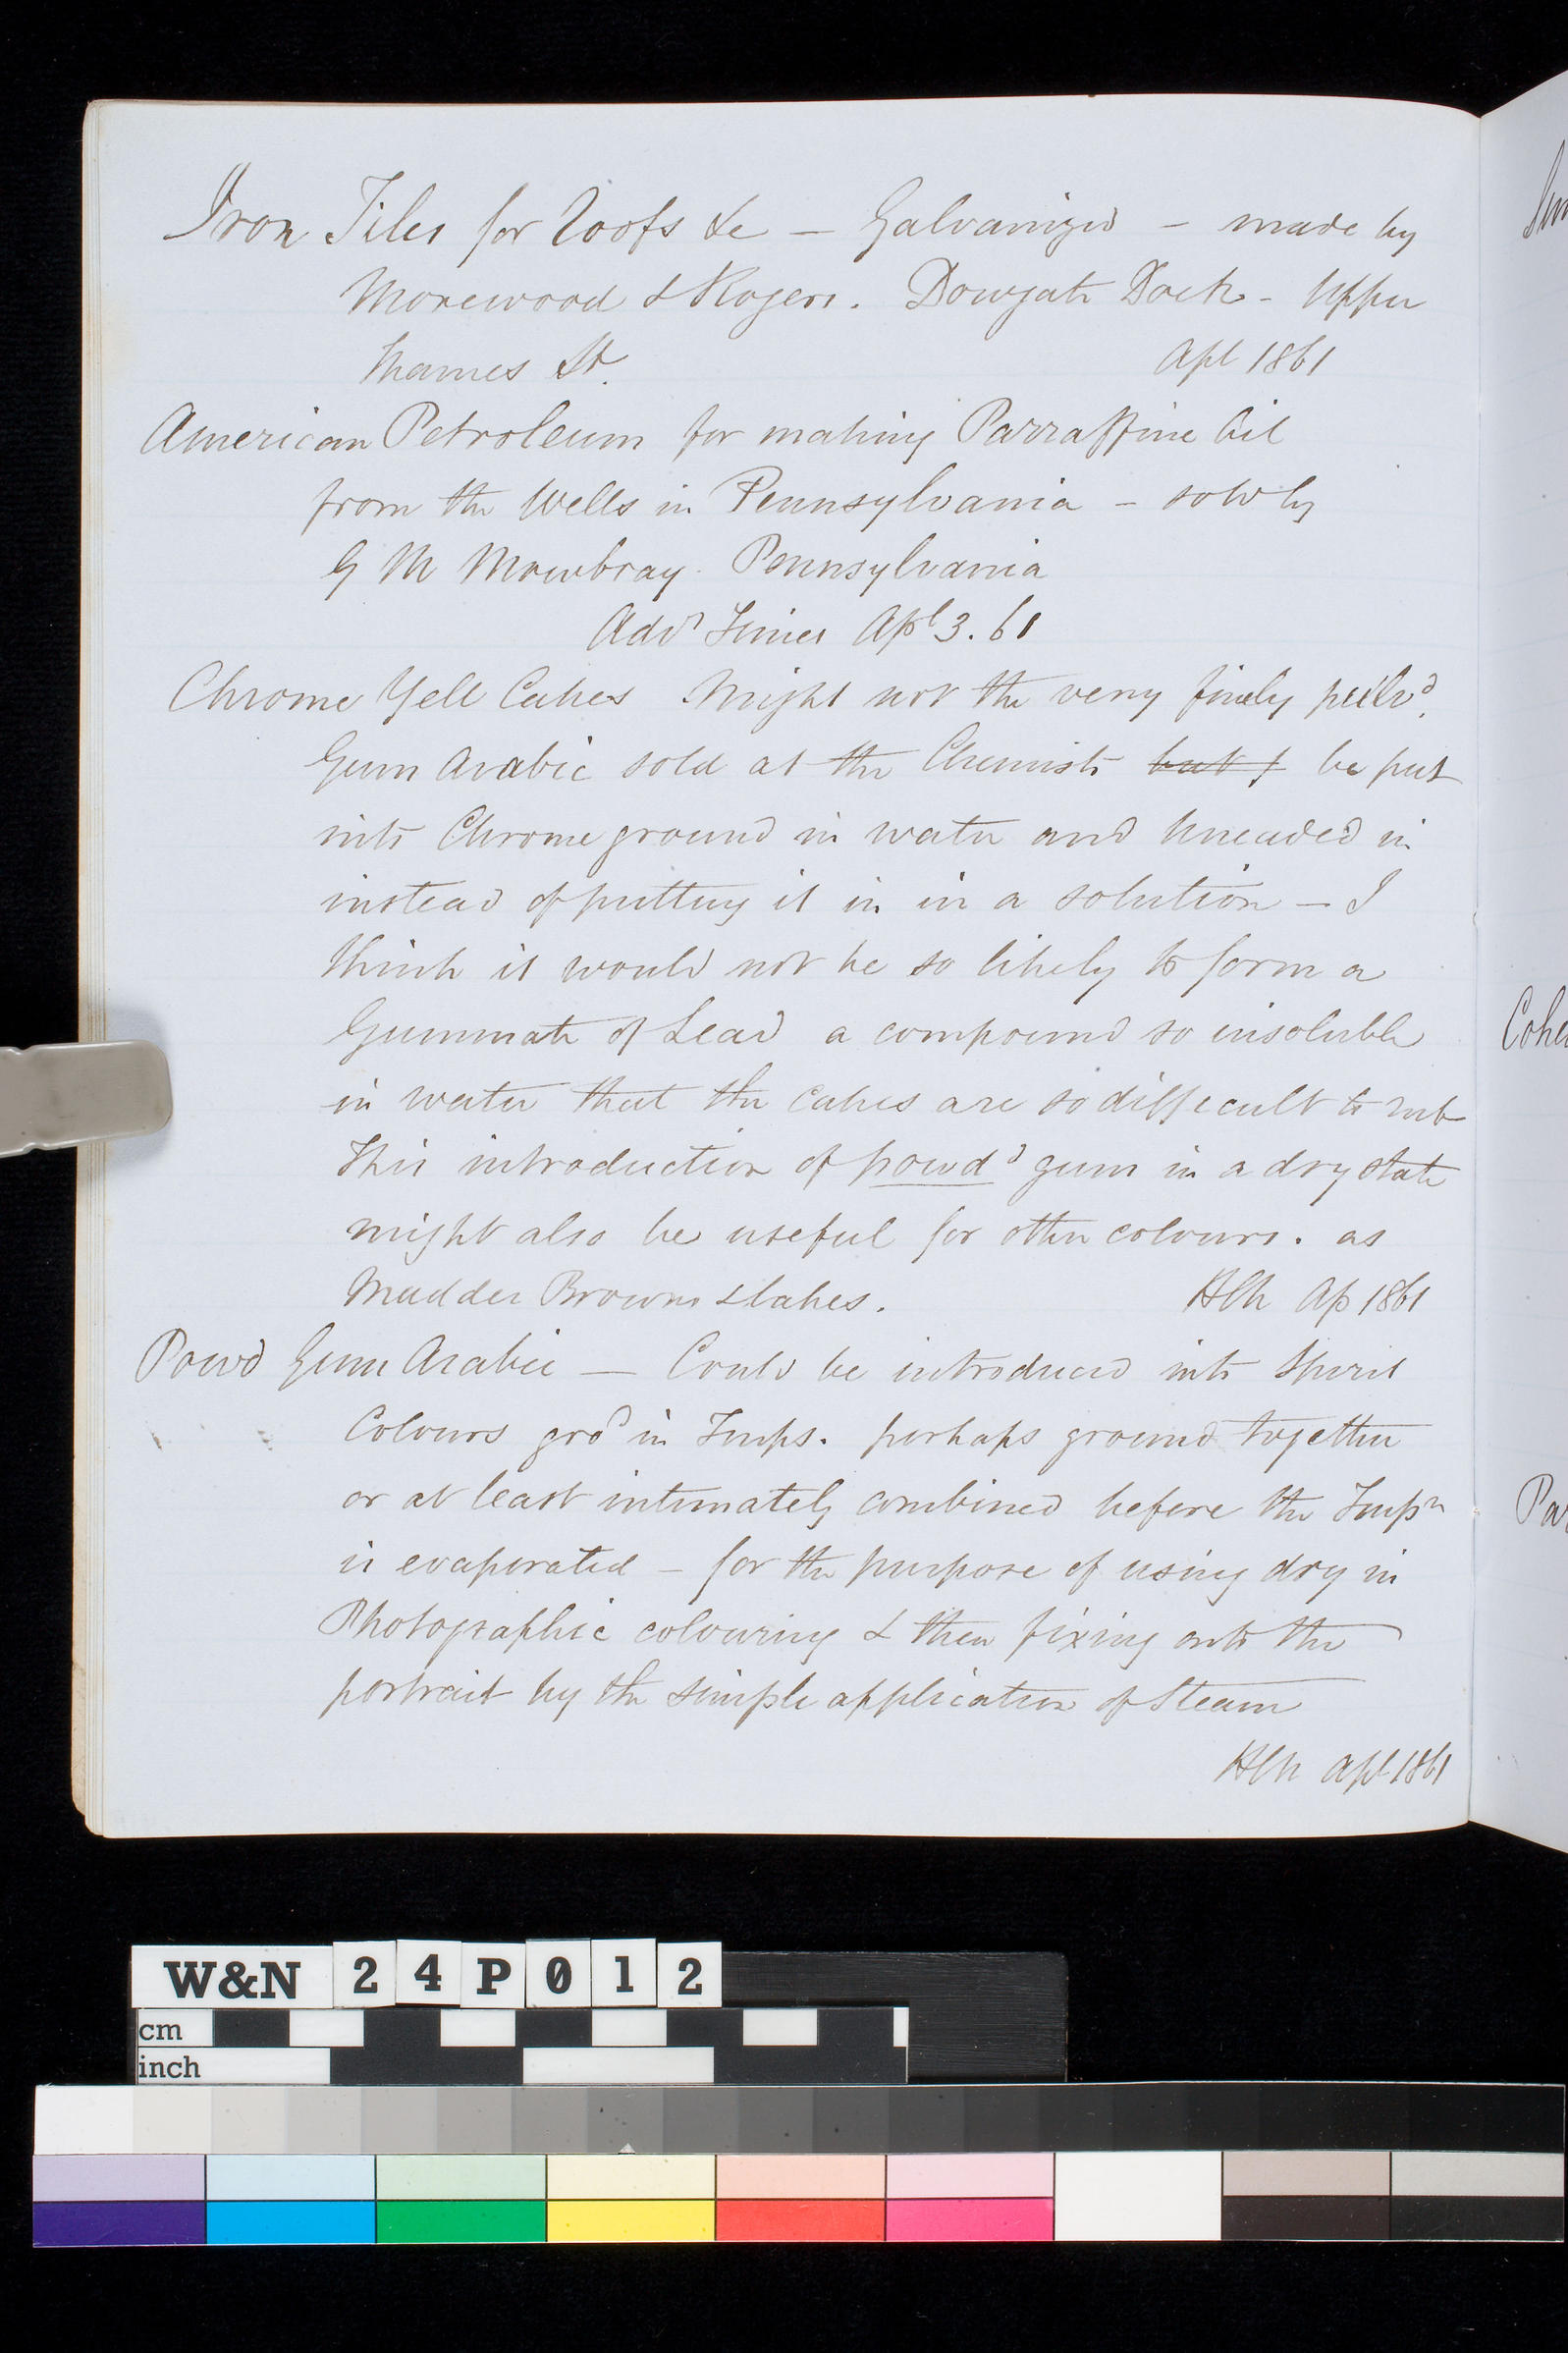 Iron Tiles for Roofs &c — Galvanized — made by
Morewood & Rogers. Dowgate Dock - Upper
Thames St.
Apl 1861
American Petroleum for making Parraffine Oil
from the Wells in Pennsylvania — sold by
G M Mowbray. Pennsylvania
Advt Times Apl 3. 61
Chrome Yell Cakes Might not the very finely pulvd
Gum Arabic sold at the Chemists but be put
into Chrome ground in water and kneaded in
instead of putting it in in a solution — I
think it would not be so likely to form a
Gummate of Lead a compound so insoluble
in water that the cakes are so difficult to rub
This introduction of powdd gum in a dry state
might also be useful for other colours. as
Madder Browns & lakes.
HCN Ap 1861
Powd Gum Arabic — Could be introduced into Spirit
Colours grd in Turps. perhaps ground together
or at least intimately combined before the Turpn
is evaporated — for the purpose of using dry in
Photographic colouring & then fixing onto the
portrait by the simple application of Steam
HCN Apl 1861
Coh
Pa
W&N 24P012
cm
inch